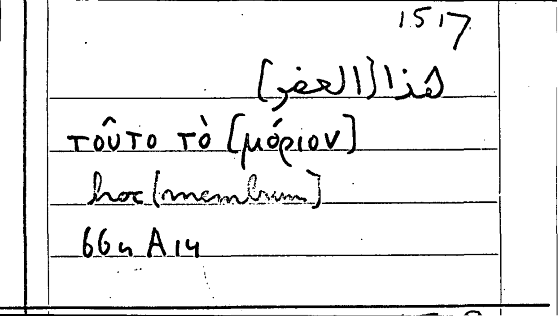 1517
هذا [العضو]
τοῦτο τὸ [μόριον]
hoc [membrum]
664 A 14